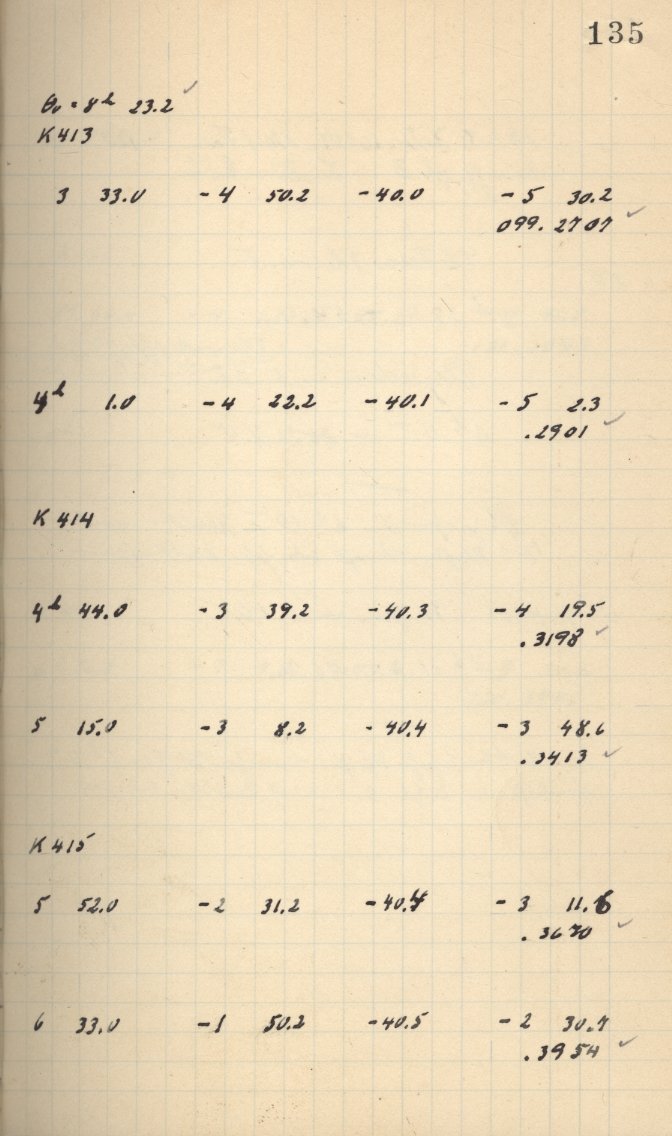 135
θ₀ = 8h 23.2 ✓
K413
3 33.0 -4 50.2 -40.0 -5 30.2
099.2707 ✓
4h 1.0 -4 22.2 -40.1 -5 2.3
.2901 ✓
K 414
4h 44.0 -3 39.2 -40.3 -4 19.5
.3198 ✓
5 15.0 -3 8.2 -40.4 -3 48.6
.3413 ✓
K 415
5 52.0 -2 31.2 -40.4 -3 11.6
.3670 ✓
6 33.0 -1 50.2 -40.5 -2 30.7
.3954 ✓